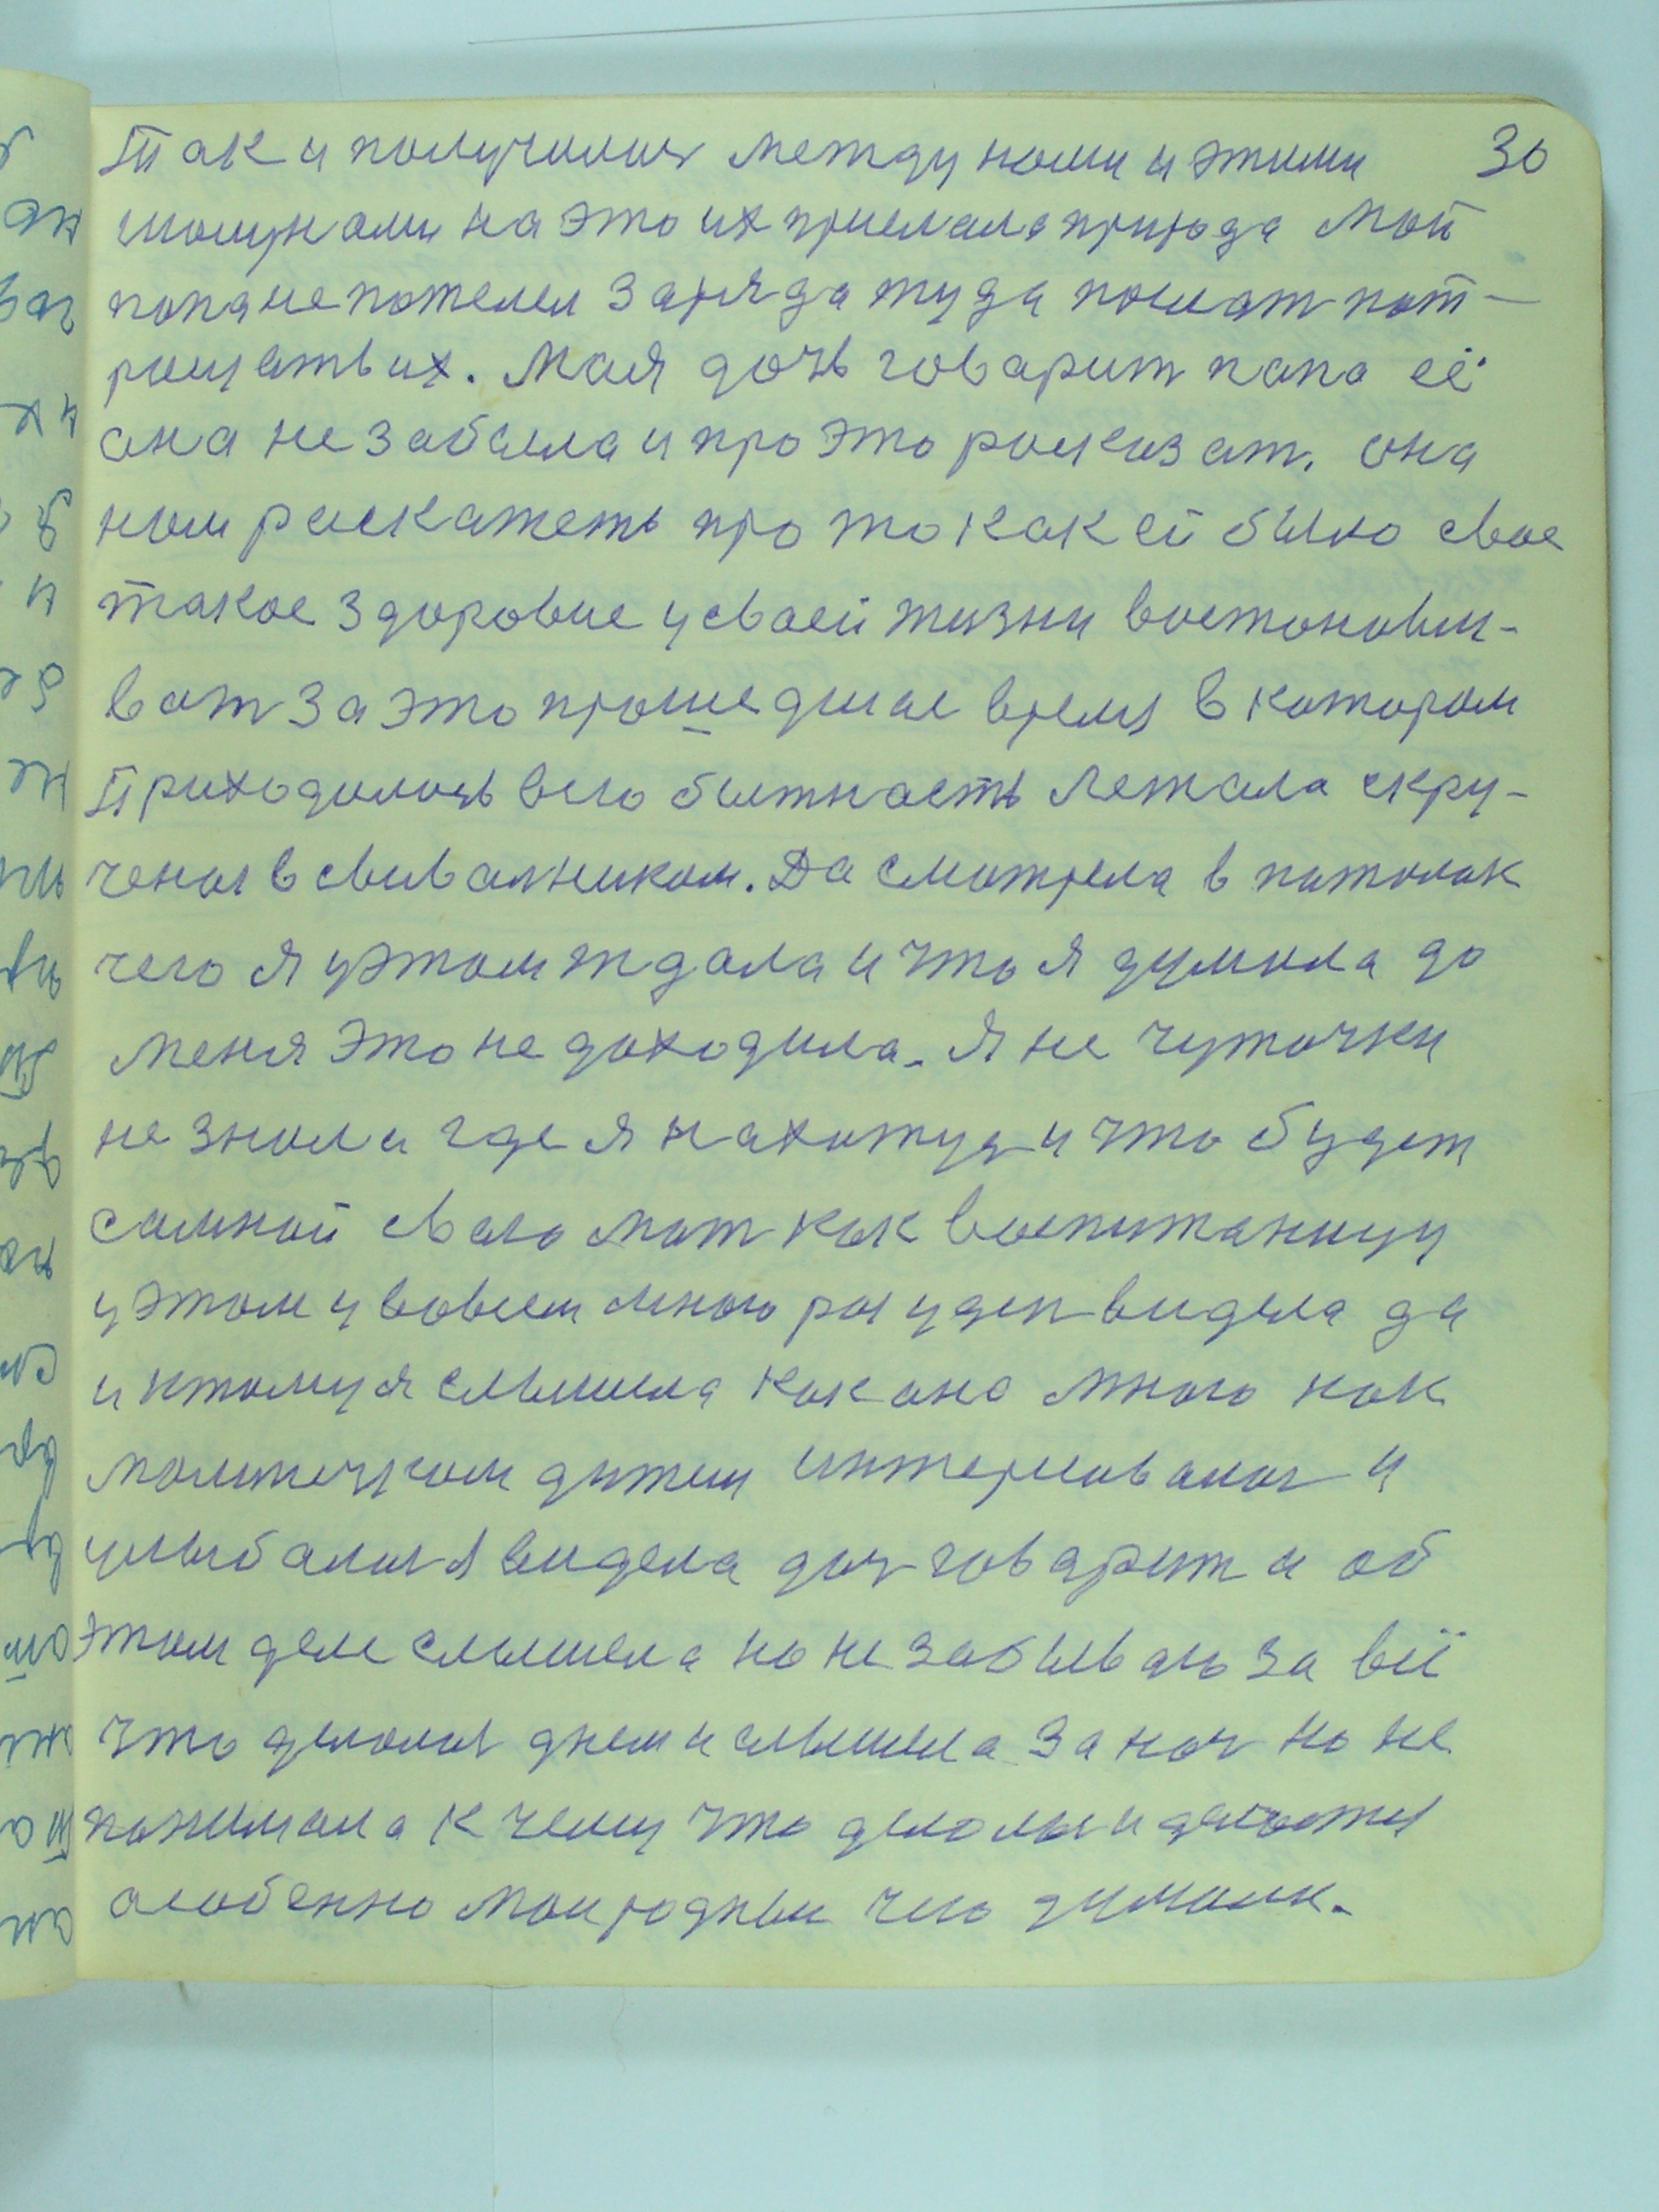 Так и получилось между нами и этими 30
шалунами на это их прислала природа мой
папа не пожелел заряда туда послат пот-
рощать их. Мая дочь говарит папа её
она не забыла и про это росказат. она
нам раскажеть про то как ей было свое
такое здоровие у сваей жизни востоновли-
ват за это прошедшее время в котором
Приходилось в его бытность лежала скру-
чоная в свивальником. Да смотрела в патолок
чего я у этом ждала и что я думала до
меня это не доходила. Я не чуточки
не знала где я нахожус и что будет
самной сваю мат как воспитаницу
у этом у вовсем много раз у ден видела да
и ктому я слышела как она много как
малютечком дитем интерисовалас и
улыбалас я видела доч говарит и об
этом деле слышела но не забывало за всё
что делалос днем и слышела за ноч но не
понимала к чему что делалос и делаетьс
асобенно мои родные чего думали.